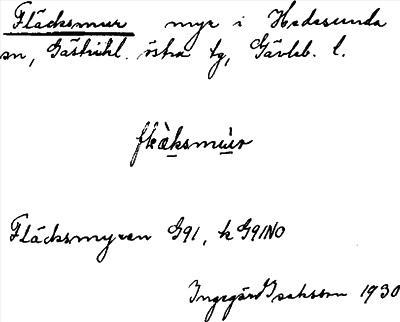 Fläcksmur myr i Hedesunda
sn, Gästrikl. östra tg, Gävleb. l.
flæ̀ksmúır
Fläcksmyran G91, k G91NO
Ingegärd Isaksson 1930